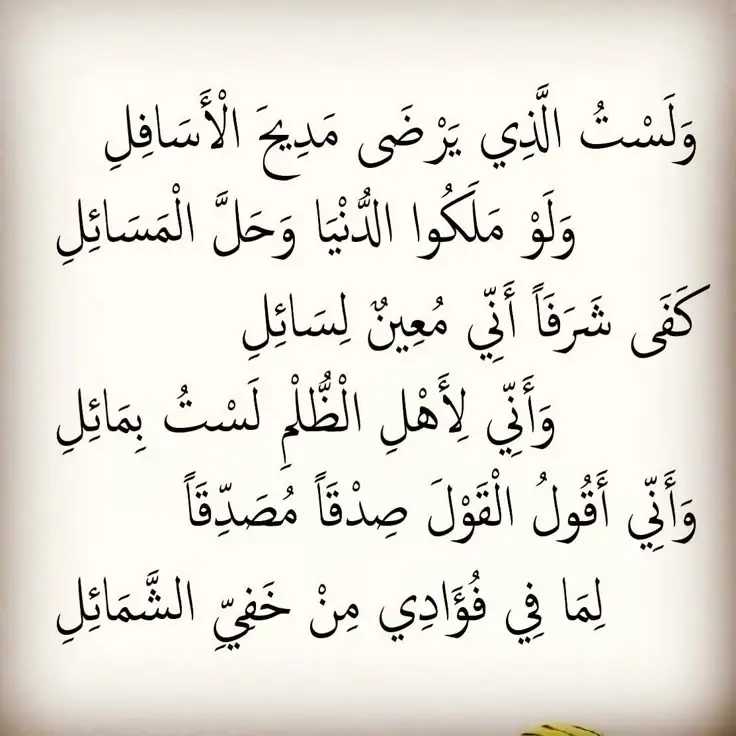 وَلَسْتُ الَّذِي يَرْضَى مَدِيحَ الْأَسَافِلِ
وَلَوْ مَلَكُوا الدُّنْيَا وَحَلَّ الْمَسَائِلِ
كَفَى شَرَفَاً أَنِّي مُعِينٌ لِسَائِلِ
وَأَنِّي لِأَهْلِ الْظُّلْمِ لَسْتُ بِمَائِلِ
وَأَنِّي أَقُولُ الْقَوْلَ صِدْقَاً مُصَدِّقَاً
لِمَا فِي فُؤَادِي مِنْ خَفِيِّ الشَّمَائِلِ